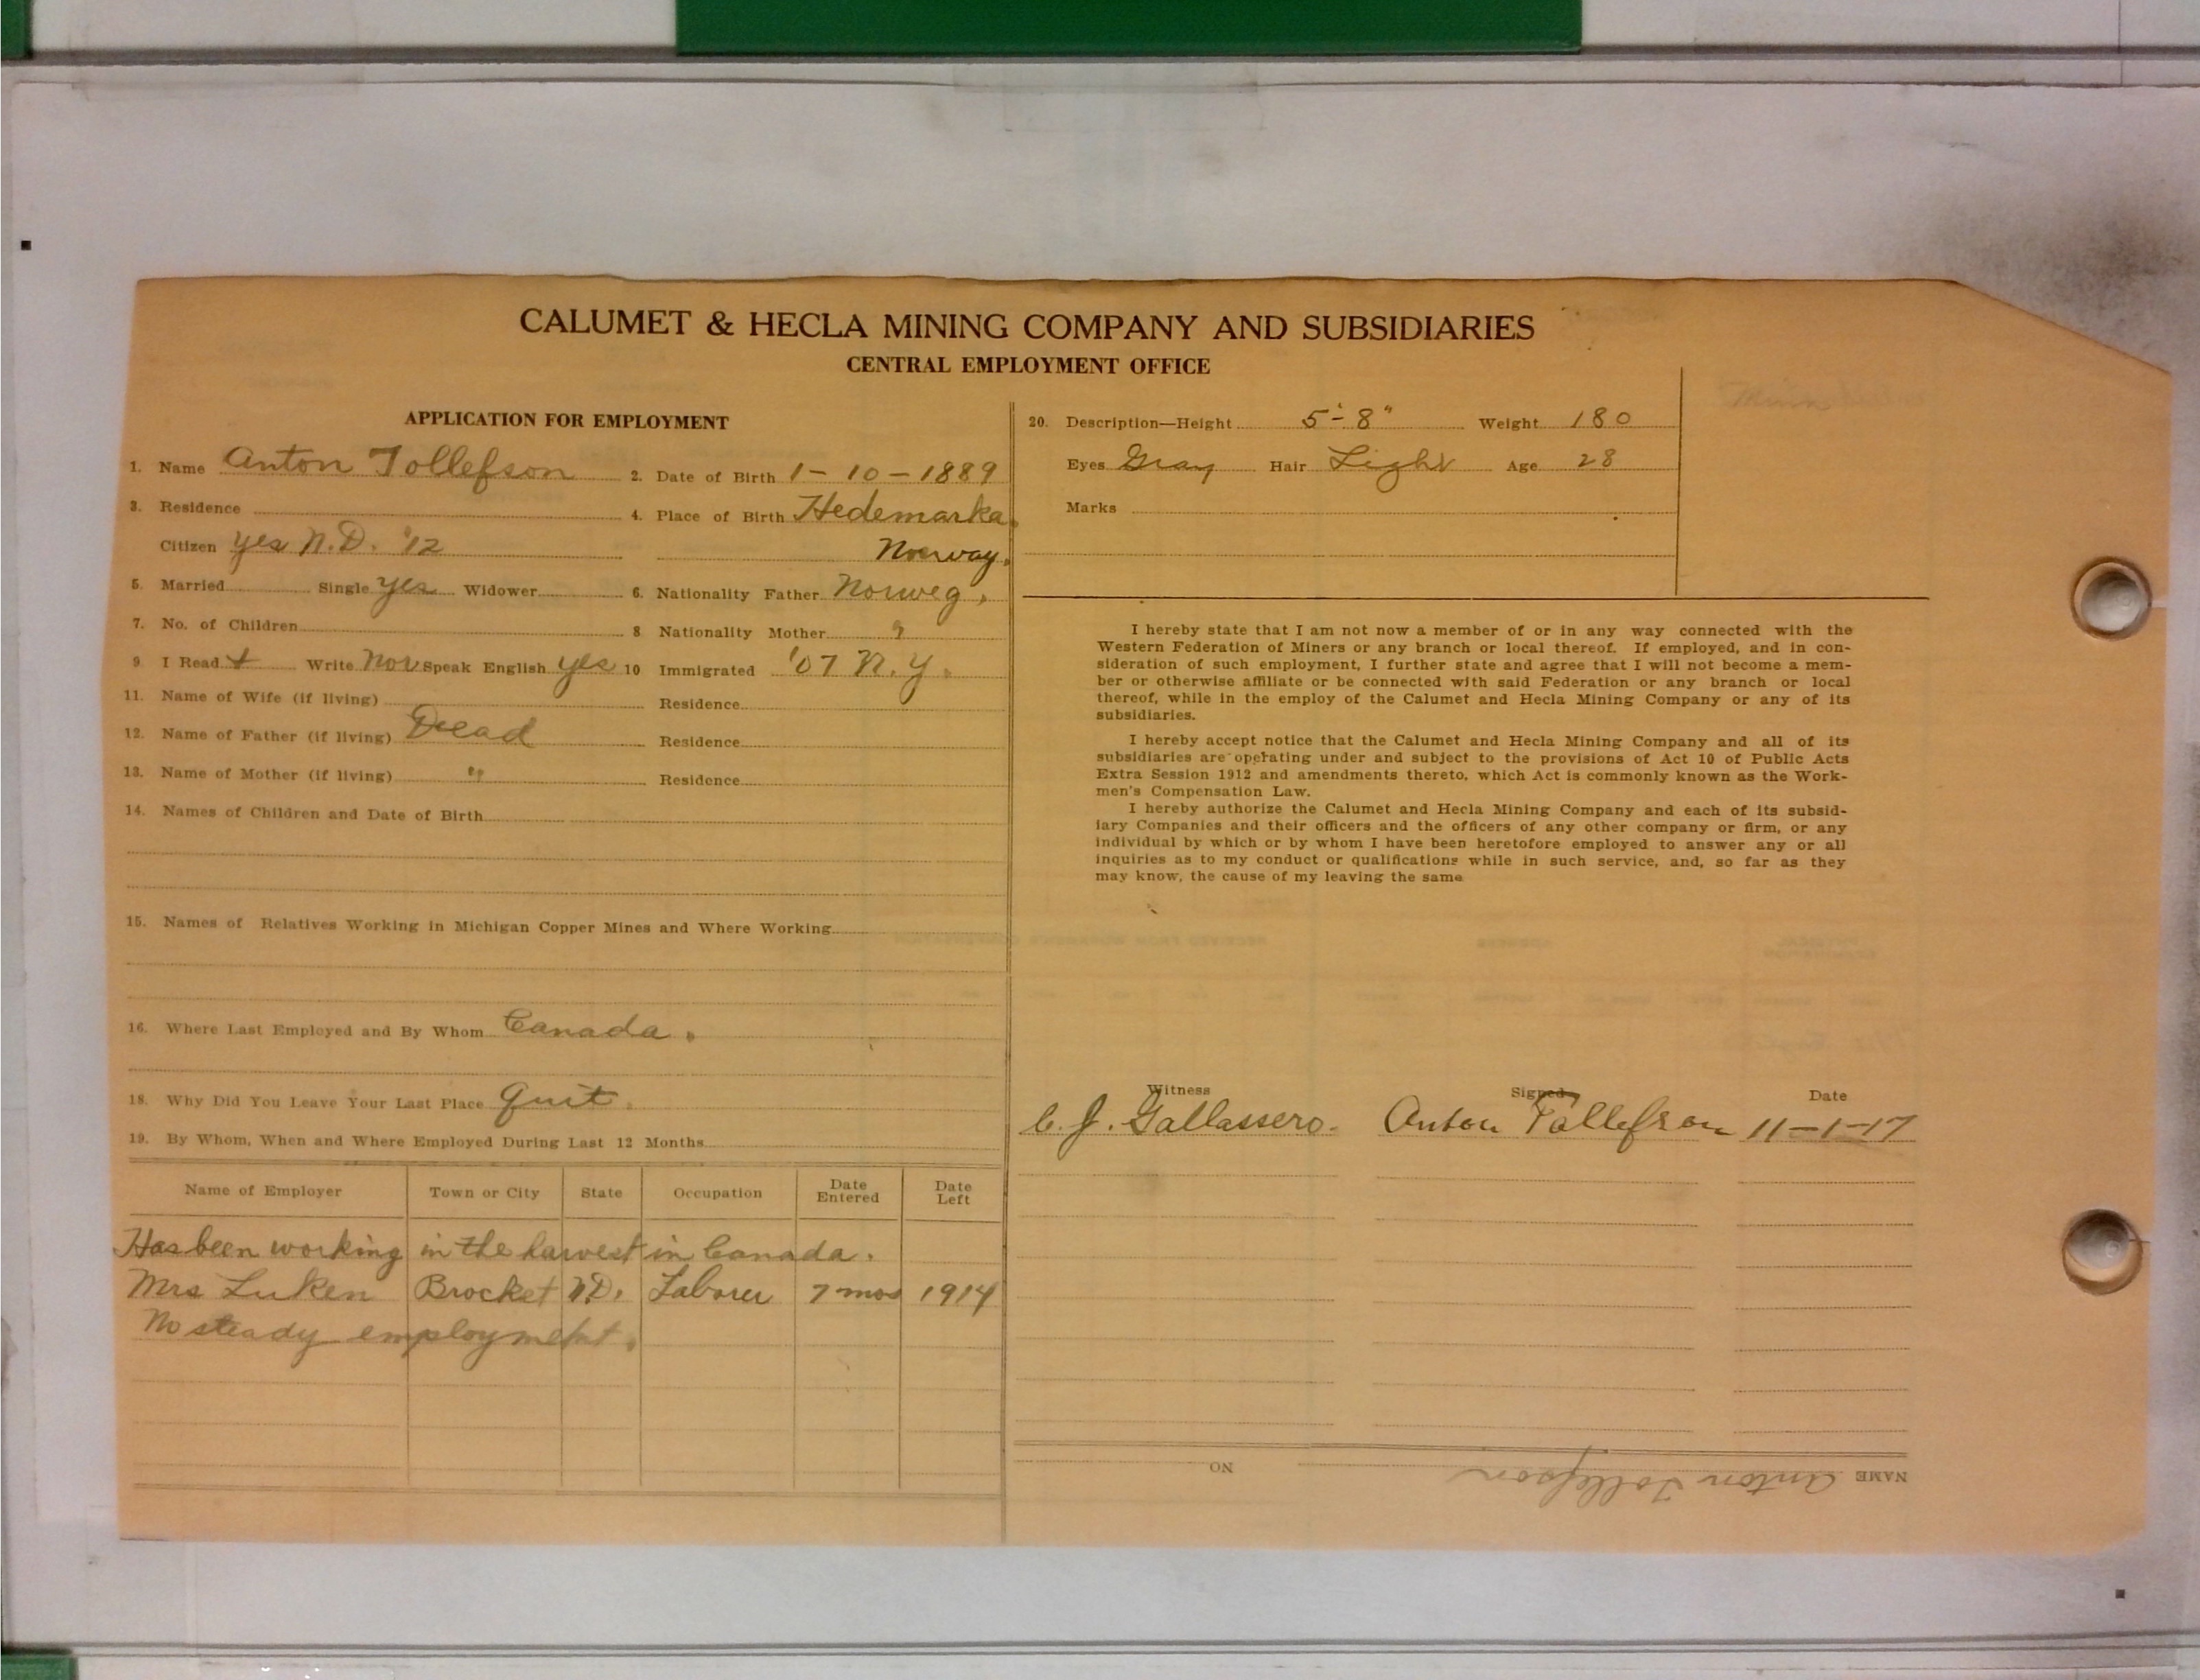 CALUMET & HECLA MINING COMPANY AND SUBSIDIARIES
CENTRAL EMPLOYMENT OFFICE
APPLICATION FOR EMPLOYMENT
1. Name Anton Tollefson 2. Date of Birth 1-10-1889
3. Residence 4. Place of Birth Hedemarka.
Citizen yes N.D. '12 Norway.
5. Married Single yes Widower 6. Nationality Father Norweg.
7. No. of Children 8 Nationality Mother "
9. I Read + Write Nor Speak English yes 10 Immigrated '07 N.Y.
11. Name of Wife (if living) Residence
12. Name of Father (if living) Dead Residence
13. Name of Mother (if living) " Residence
14. Names of Children and Date of Birth
15. Names of Relatives Working in Michigan Copper Mines and Where Working
16. Where Last Employed and By Whom Canada.
18. Why Did You Leave Your Last Place Quit.
19. By Whom, When and Where Employed During Last 12 Months
Name of Employer Town or City State Occupation Date Entered Date Left
Has been working in the harvest in Canada.
Mrs Luken Brocket N.D. Laborer 7 mos 1914
No steady employment.
20. Description—Height 5'-8" Weight 180
Eyes Gray Hair Light Age 28
Marks
I hereby state that I am not now a member of or in any way connected with the
Western Federation of Miners or any branch or local thereof. If employed, and in con-
sideration of such employment, I further state and agree that I will not become a mem-
ber or otherwise affiliate or be connected with said Federation or any branch or local
thereof, while in the employ of the Calumet and Hecla Mining Company or any of its
subsidiaries.
I hereby accept notice that the Calumet and Hecla Mining Company and all of its
subsidiaries are operating under and subject to the provisions of Act 10 of Public Acts
Extra Session 1912 and amendments thereto, which Act is commonly known as the Work-
men's Compensation Law.
I hereby authorize the Calumet and Hecla Mining Company and each of its subsid-
iary Companies and their officers and the officers of any other company or firm, or any
individual by which or by whom I have been heretofore employed to answer any or all
inquiries as to my conduct or qualifications while in such service, and, so far as they
may know, the cause of my leaving the same
Witness Signed Date
C. J. Gallassero. Anton Tollefson 11-1-17
NAME Anton Tollefson NO